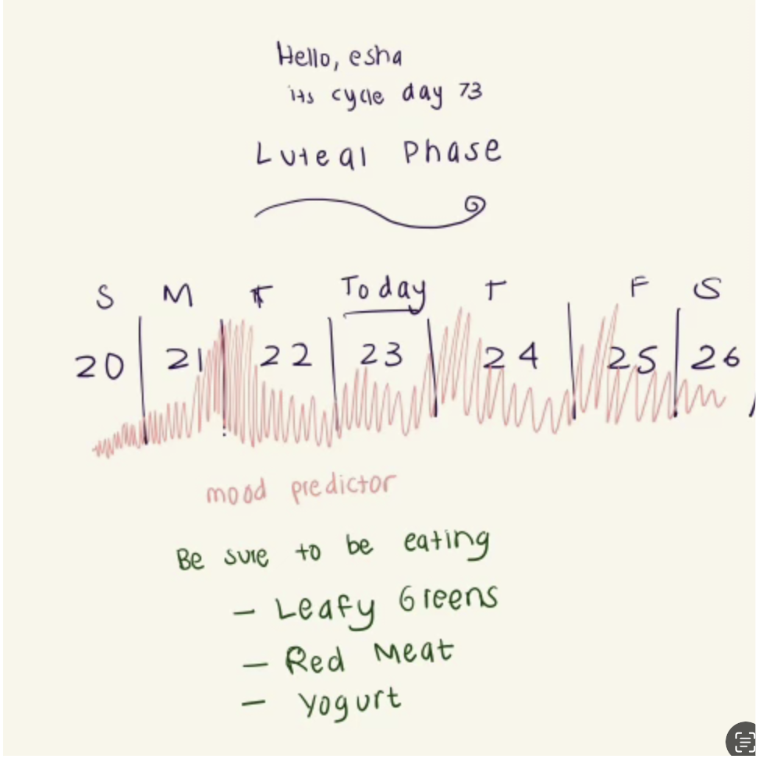 Hello, esha
its cycle day 73
Luteal Phase
S M T Today T F S
20 21 22 23 24 25 26
mood predictor
Be sure to be eating
- Leafy Greens
- Red Meat
- Yogurt